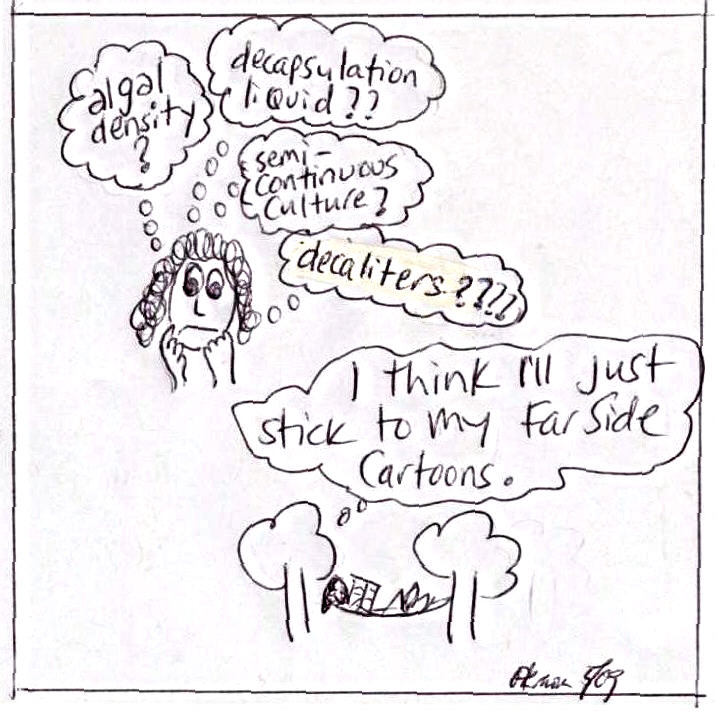 algal
density
?
decapsulation
liquid??
semi-
continuous
culture?
decaliters????
I think I'll just
stick to my Far Side
Cartoons.
5/09